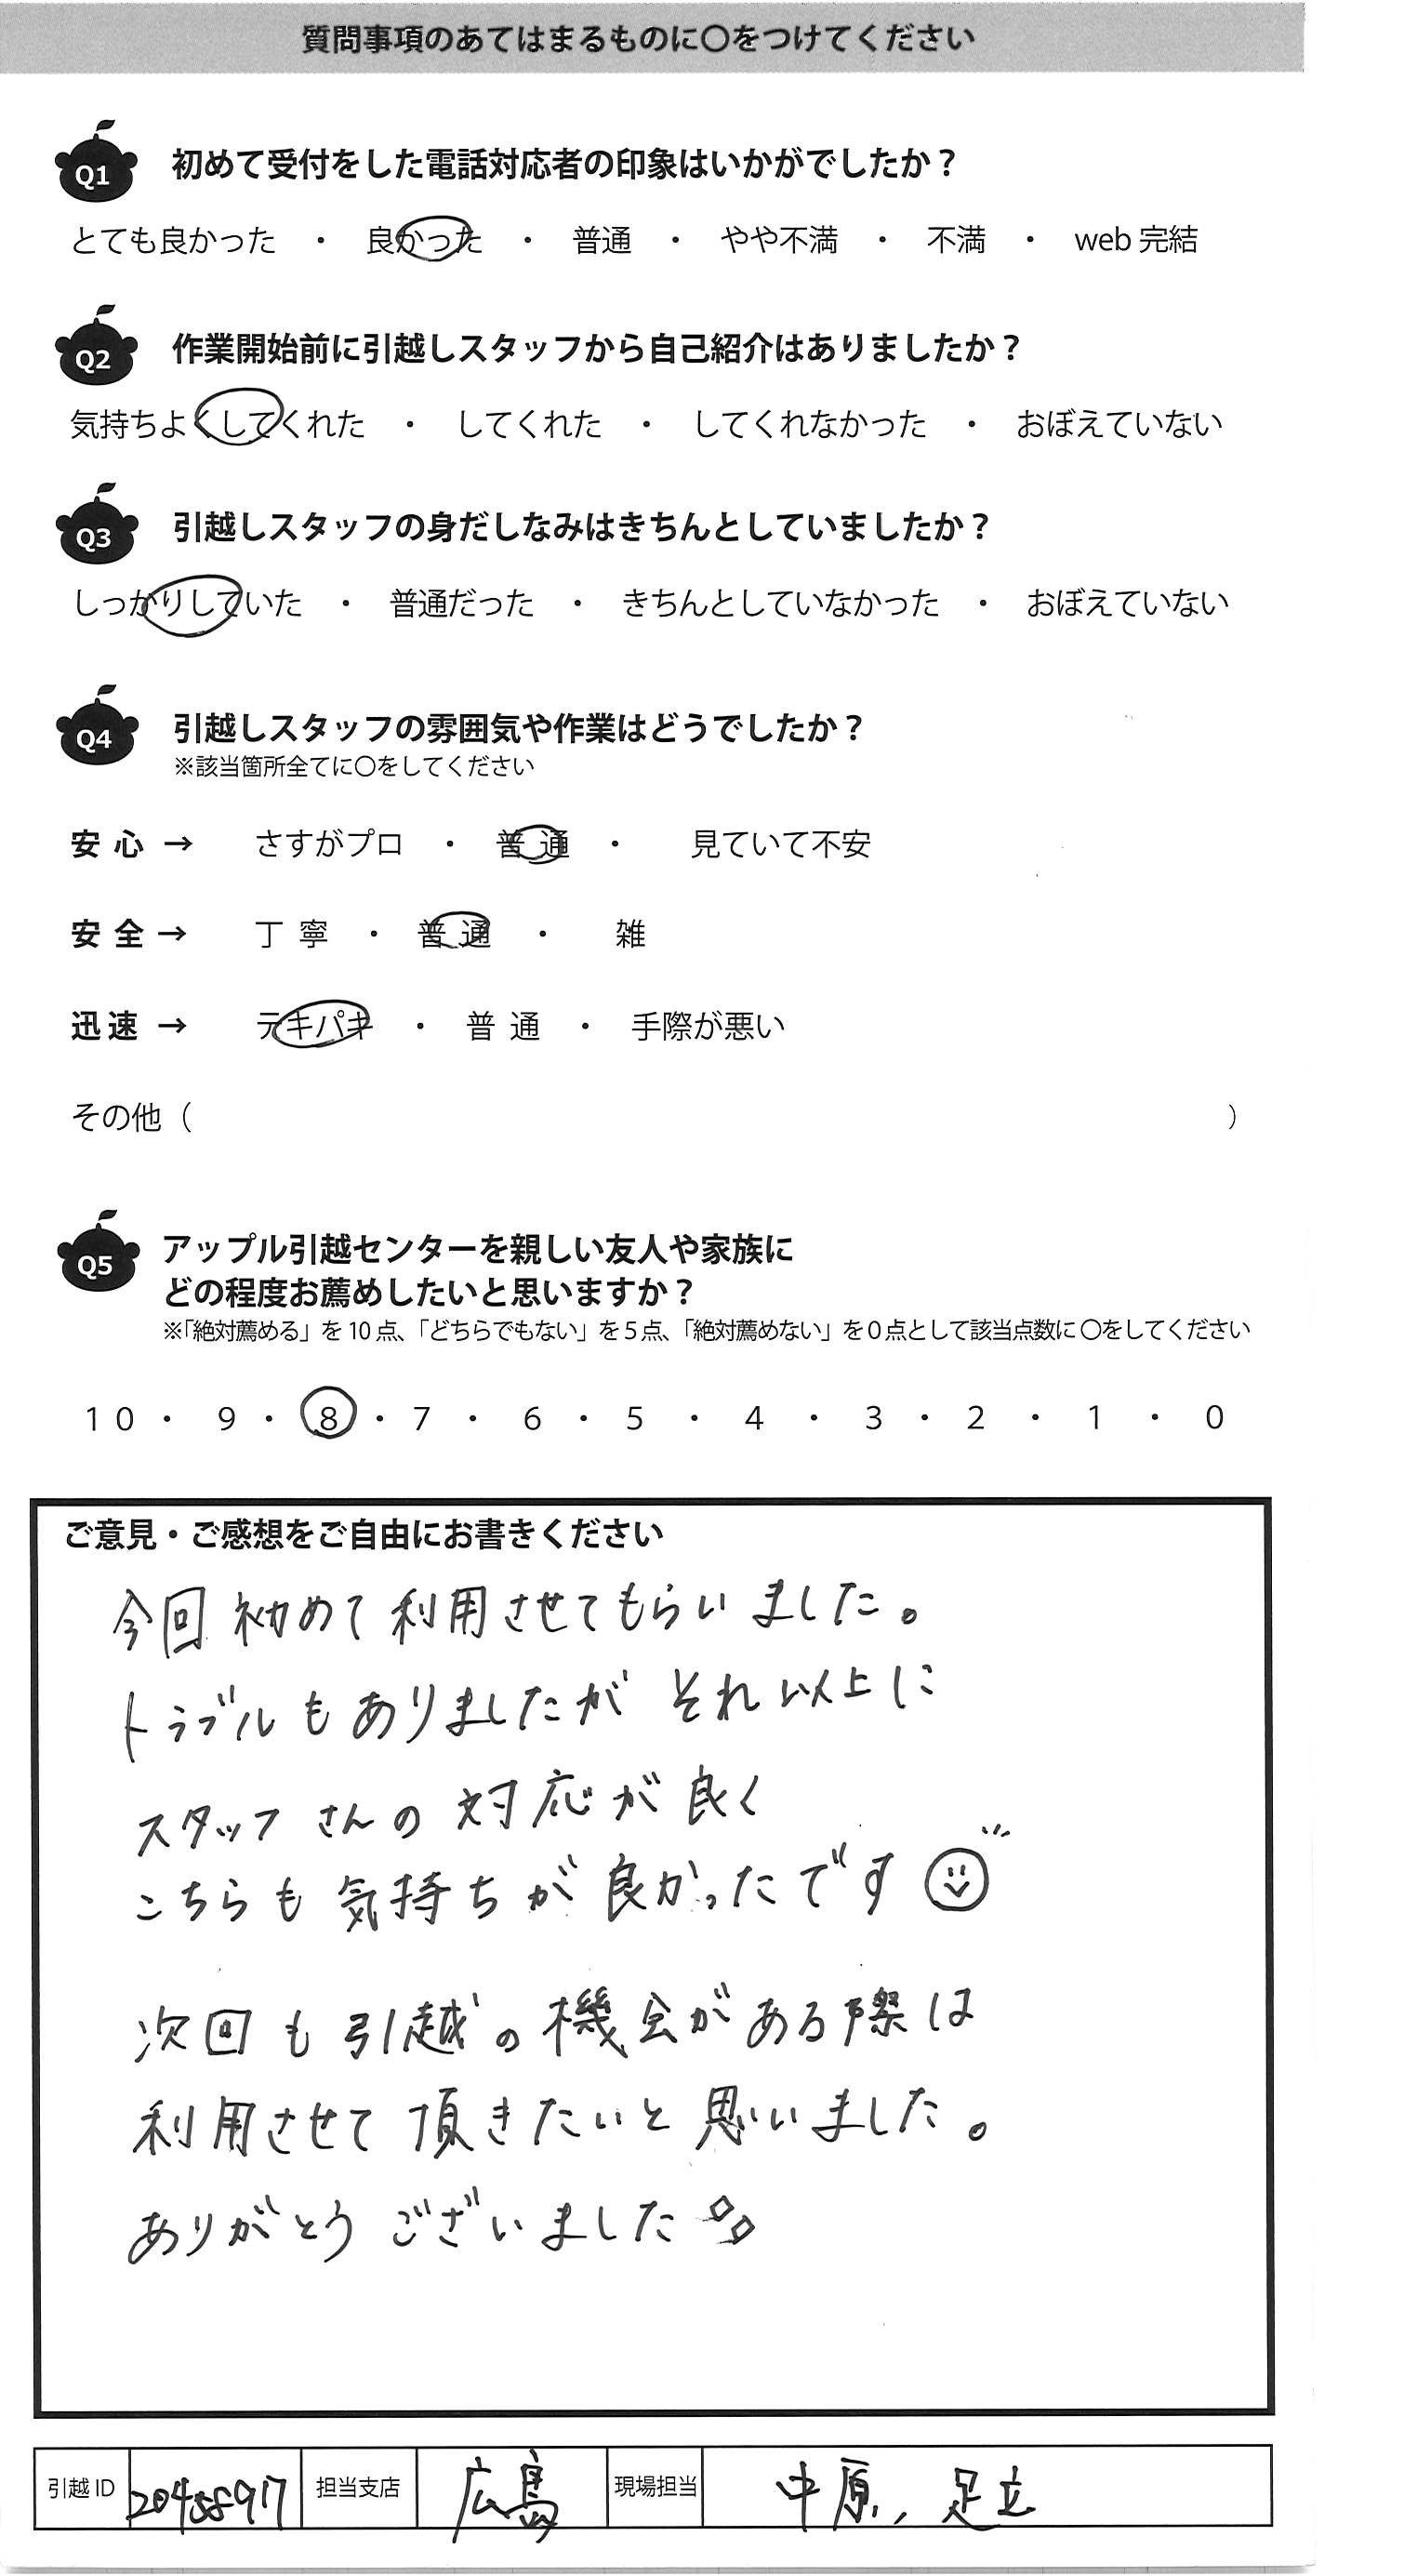 質問事項のあてはまるものに〇をつけてください
Q1 初めて受付をした電話対応者の印象はいかがでしたか？
とても良かった ・ 良かった ・ 普通 ・ やや不満 ・ 不満 ・ web 完結
Q2 作業開始前に引越しスタッフから自己紹介はありましたか？
気持ちよくしてくれた ・ してくれた ・ してくれなかった ・ おぼえていない
Q3 引越しスタッフの身だしなみはきちんとしていましたか？
しっかりしていた ・ 普通だった ・ きちんとしていなかった ・ おぼえていない
Q4 引越しスタッフの雰囲気や作業はどうでしたか？
※該当箇所全てに〇をしてください
安心 → さすがプロ ・ 普通 ・ 見ていて不安
安全 → 丁寧 ・ 普通 ・ 雑
迅速 → テキパキ ・ 普通 ・ 手際が悪い
その他（ ）
Q5 アップル引越センターを親しい友人や家族に
どの程度お薦めしたいと思いますか？
※「絶対薦める」を10点、「どちらでもない」を5点、「絶対薦めない」を0点として該当点数に〇をしてください
10 ・ 9 ・ 8 ・ 7 ・ 6 ・ 5 ・ 4 ・ 3 ・ 2 ・ 1 ・ 0
ご意見・ご感想をご自由にお書きください
今回初めて利用させてもらいました。
トラブルもありましたが それ以上に
スタッフさんの対応が良く
こちらも気持ちが良かったです
次回も引越の機会がある際は
利用させて頂きたいと思いました。
ありがとうございました
引越ID 20458917 担当支店 広島 現場担当 中原、足立